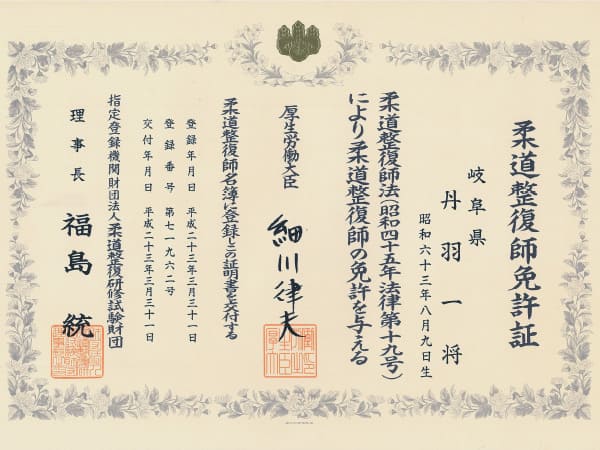 柔道整復師免許証
岐阜県
丹羽一将
昭和六十三年八月九日生
柔道整復師法(昭和四十五年法律第十九号)
により柔道整復師の免許を与える
厚生労働大臣 細川律夫
柔道整復師名簿に登録しこの証明書を交付する
登録年月日 平成二十三年三月三十一日
登録番号 第七一九六二号
交付年月日 平成二十三年三月三十一日
指定登録機関財団法人柔道整復研修試験財団
理事長 福島統